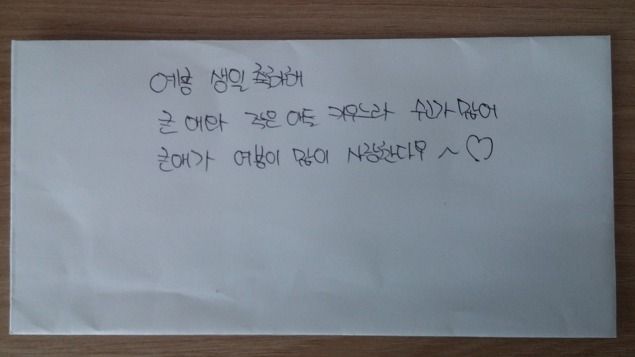 예봉 생일 축하해
큰 애와 작은 애들 키우느라 수고가 많어
큰애가 예봉이 많이 사랑한다우 ~ ♡